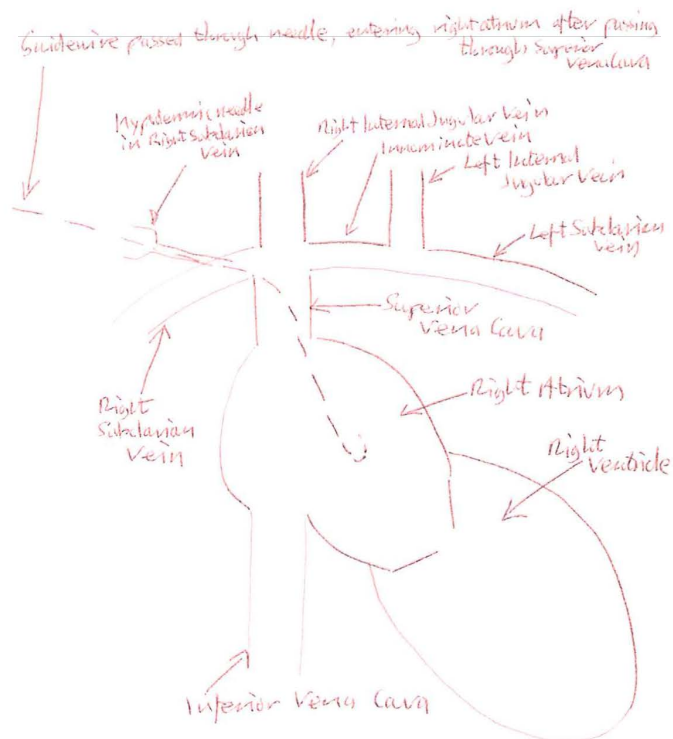 Guidewire passed through needle, entering right atrium after passing
through superior
vena cava
Hypodermic needle
in Right Subclavian
Vein
Right Internal Jugular Vein
Innominate Vein
Left Internal
Jugular Vein
Left Subclavian
Vein
Superior
Vena Cava
Right Atrium
Right
Subclavian
Vein
Right
Ventricle
Inferior Vena Cava